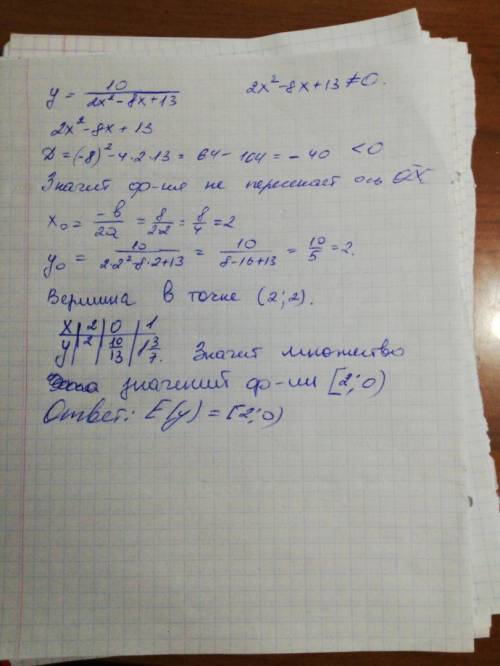 y = 10/(2x²-8x+13)    2x²-8x+13≠0.
2x²-8x+13
D=(-8)²-4·2·13=64-104=-40 <0
Значит ф-ия не пересекает ось OX.
x₀= -b/2a = 8/2·2 = 8/4 = 2
y₀ = 10/(2·2²-8·2+13) = 10/(8-16+13) = 10/5 = 2.
Вершина в точке (2;2).
x | 2 | 0 | 1
y | 2 | 10/13 | 1 3/7. Значит множество
значений ф-ии [2;0)
Ответ: E(y)=[2;0)